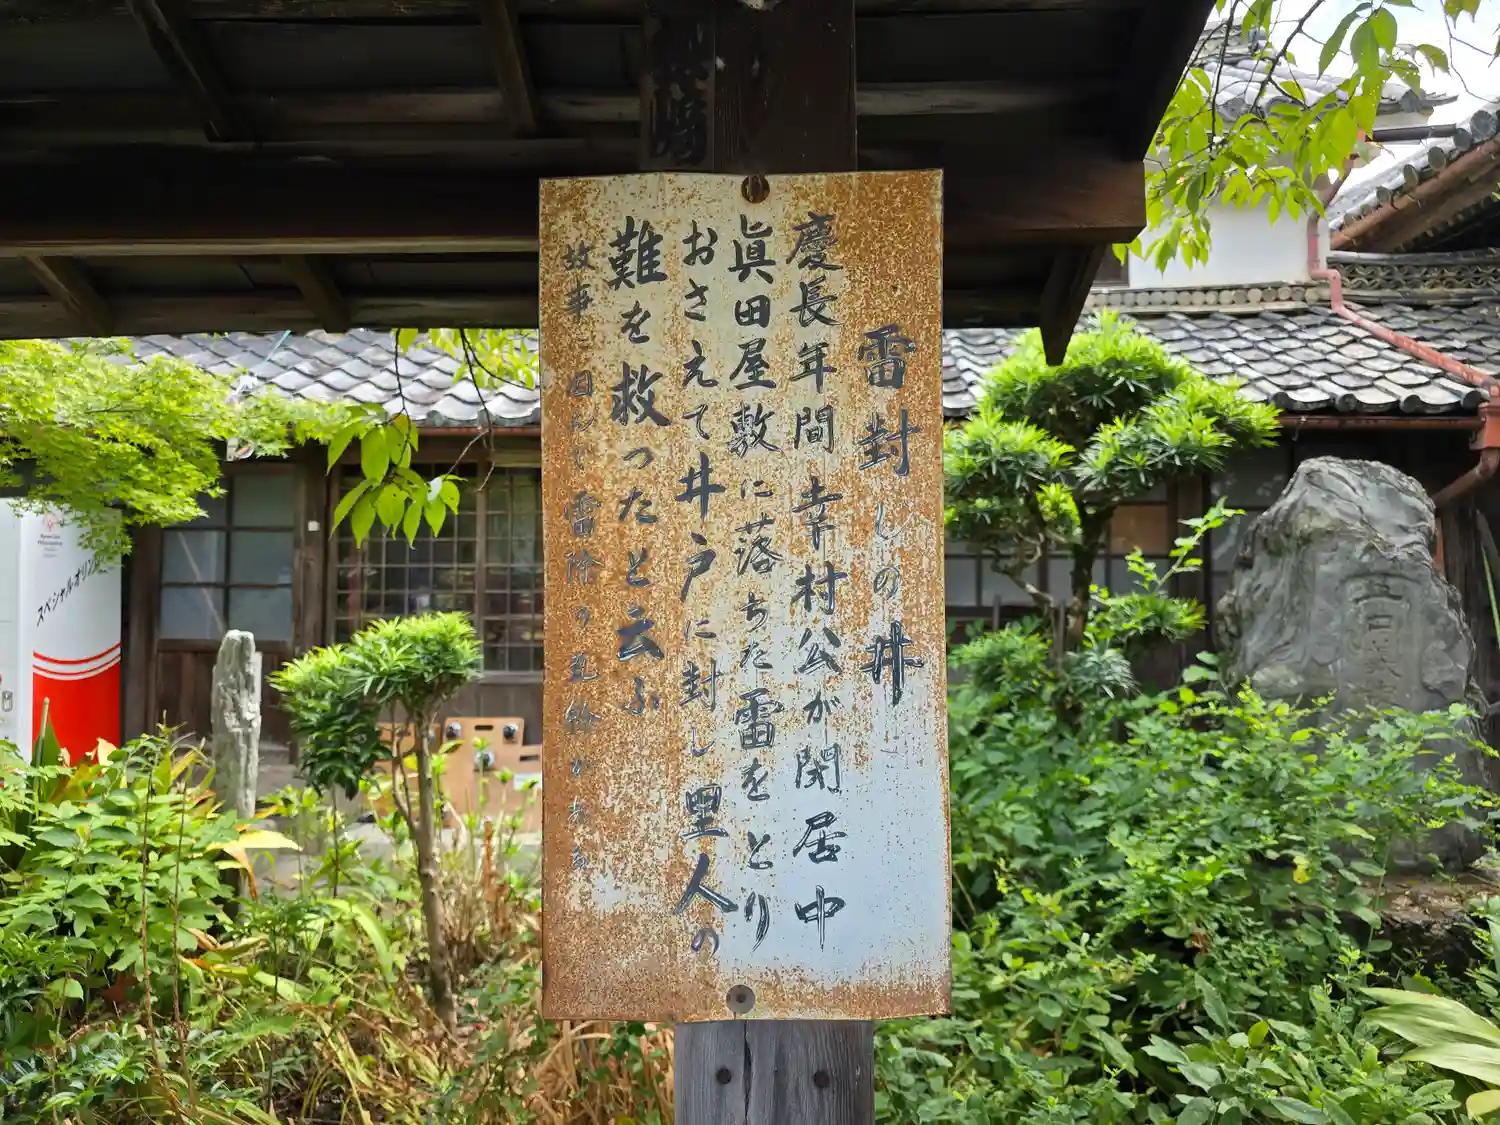 雷封じの井
慶長年間幸村公が閑居中
眞田屋敷に落ちた雷をとり
おさえて井戸に封し里人の
難を救ったと云ふ
故事に因んで雷除の瓦鈴があ
スペシャルオリン